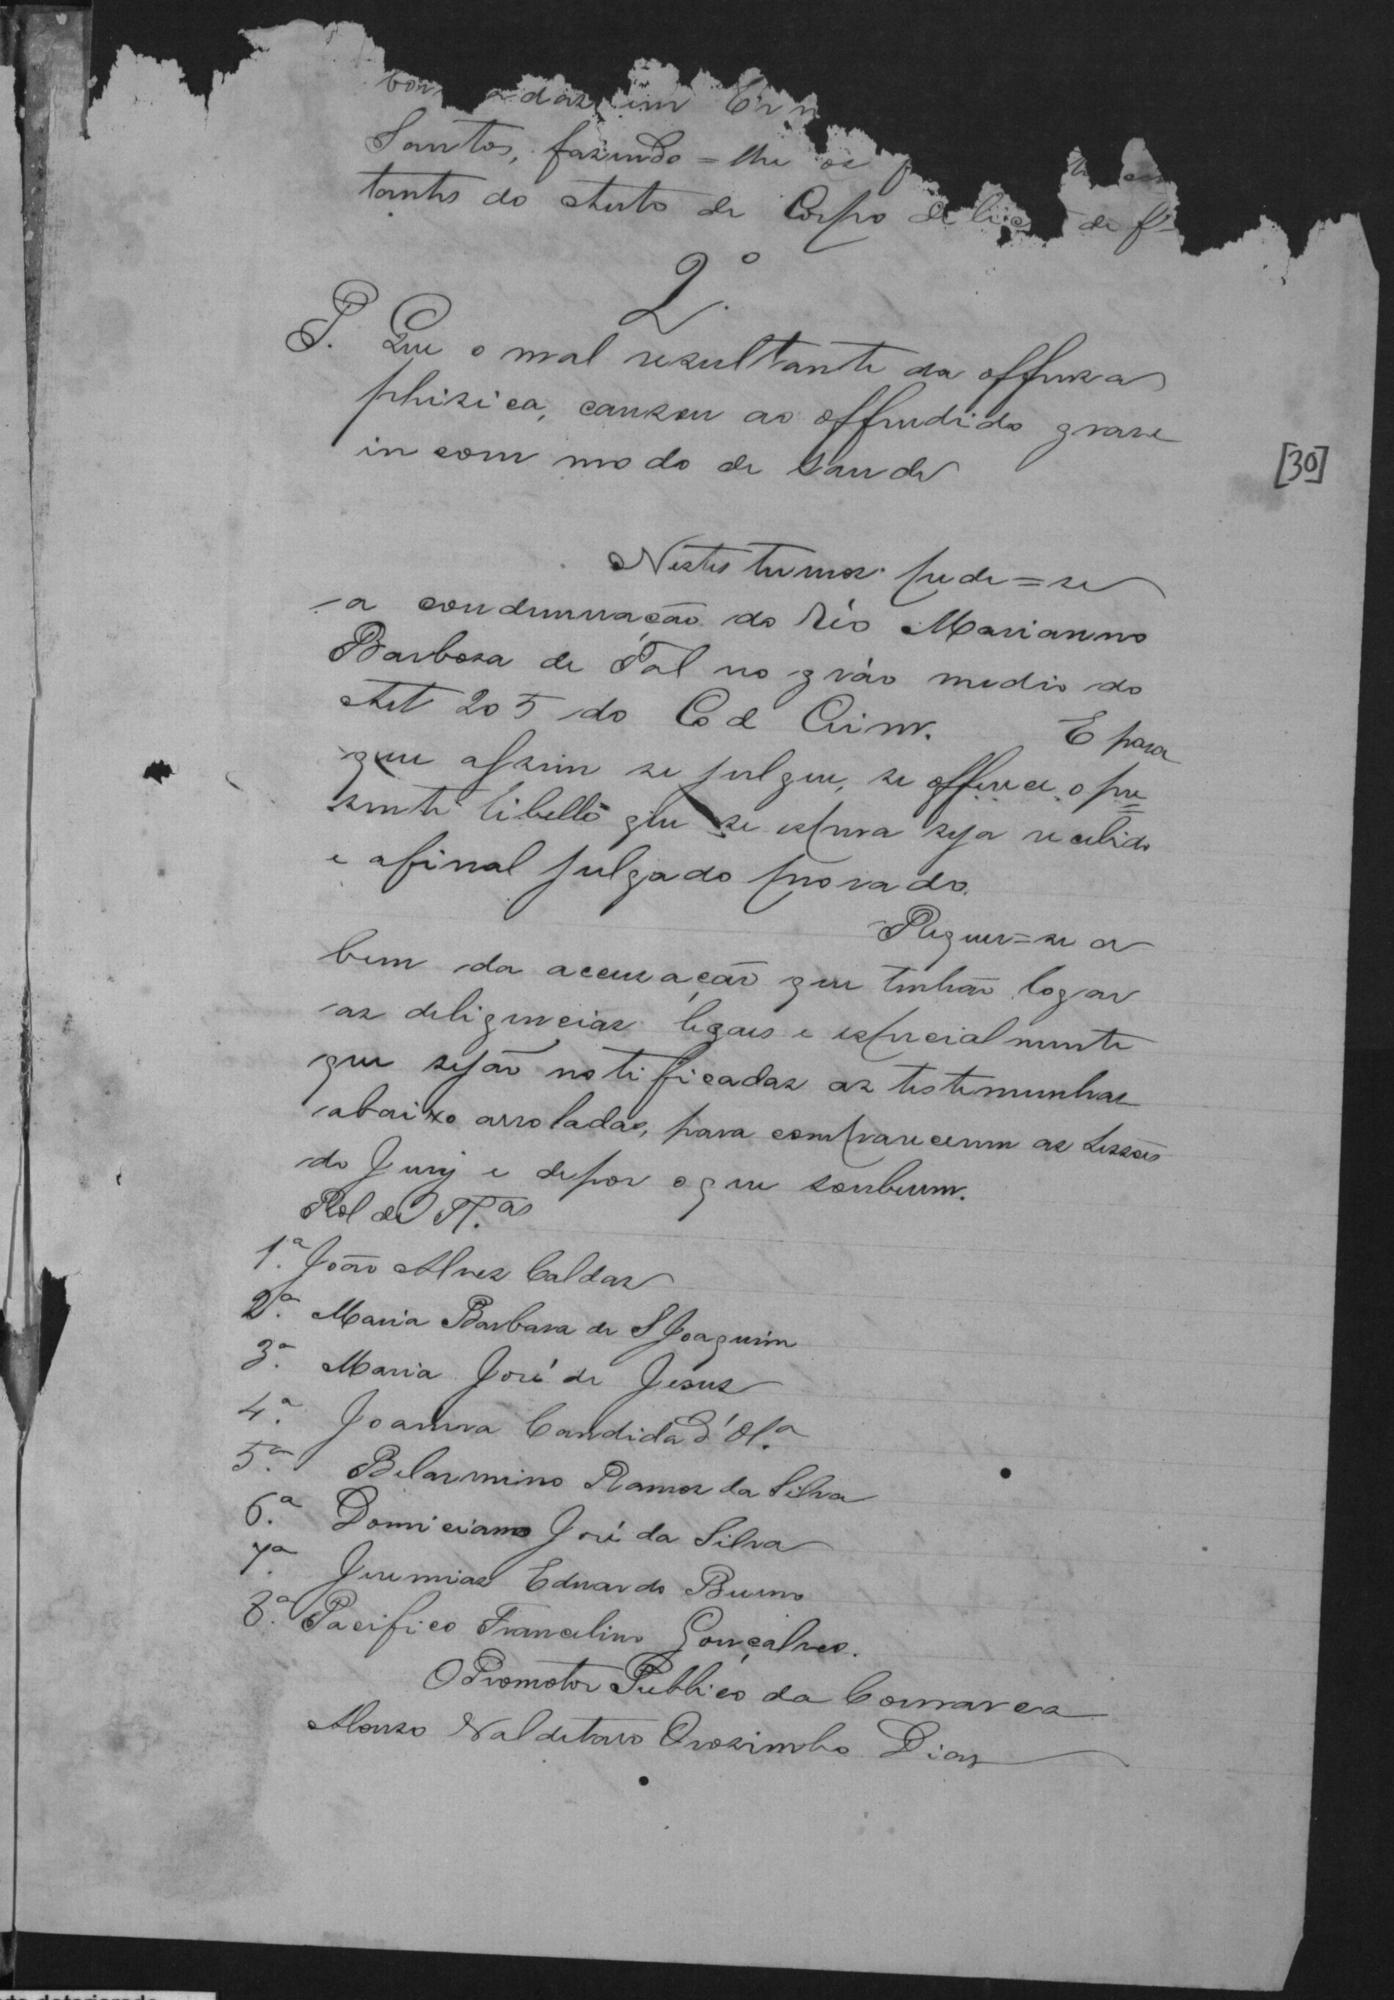 adas em
Santos, fazendo=lhe os
tantes do Auto de Corpo de
2.º
P. Que o mal resultante da offensa
phisica, causou ao offendido grave
incommodo de saude
[30]
Nestes termos pede=se
a condemnação do Réo Marianno
Barbosa de Tal no gráo medio do
Art 205 do Cod Crim. E para
que assim se julgue, se offerece o pre=
sente libello que se espera seja recebido
e afinal julgado provado.
Requer=se a
bem da accusação que tenhão logar
as deligencias legaes e especialmente
que sejão notificadas as testemunhas
abaixo arroladas, para comparecerem as Sessões
do Jury e depor o que souberem.
Rol de TT.as
1.ª João Alves Caldas
2.ª Maria Barbara de S Joaquim
3.ª Maria José de Jesus
4.ª Joanna Candida d'Ol.ª
5.ª Belarmino Ramos da Silva
6.ª Domiciano José da Silva
7.ª Jeremias Eduardo Bueno
8.ª Pacifico Francelino Gonçalves.
O Promotor Publico da Comarca
Alonso Valdetaro Orosimbo Dias